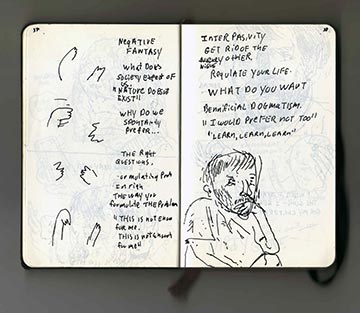 37
NEGATIVE
FANTASY
WHAT DOES
SOCIETY EXPECT OF
US
"NATURE DOESN'T
EXIST"
WHY DO WE
SPONTANTLY
PREFER...
THE RIGHT
QUESTIONS.
THE WAY YOU
FORMULATE THE PROBLEM
"THIS IS NOT ENOUGH
FOR ME.
THIS IS NOT ENOUGH
FOR ME"
38
INTERPASIVITY
GET RID OF THE
OTHER
REGULATE YOUR LIFE.
WHAT DO YOU WANT
BENIFICIAL DOGMATISM.
"I WOULD PREFER NOT TOO"
"LEARN, LEARN, LEARN"